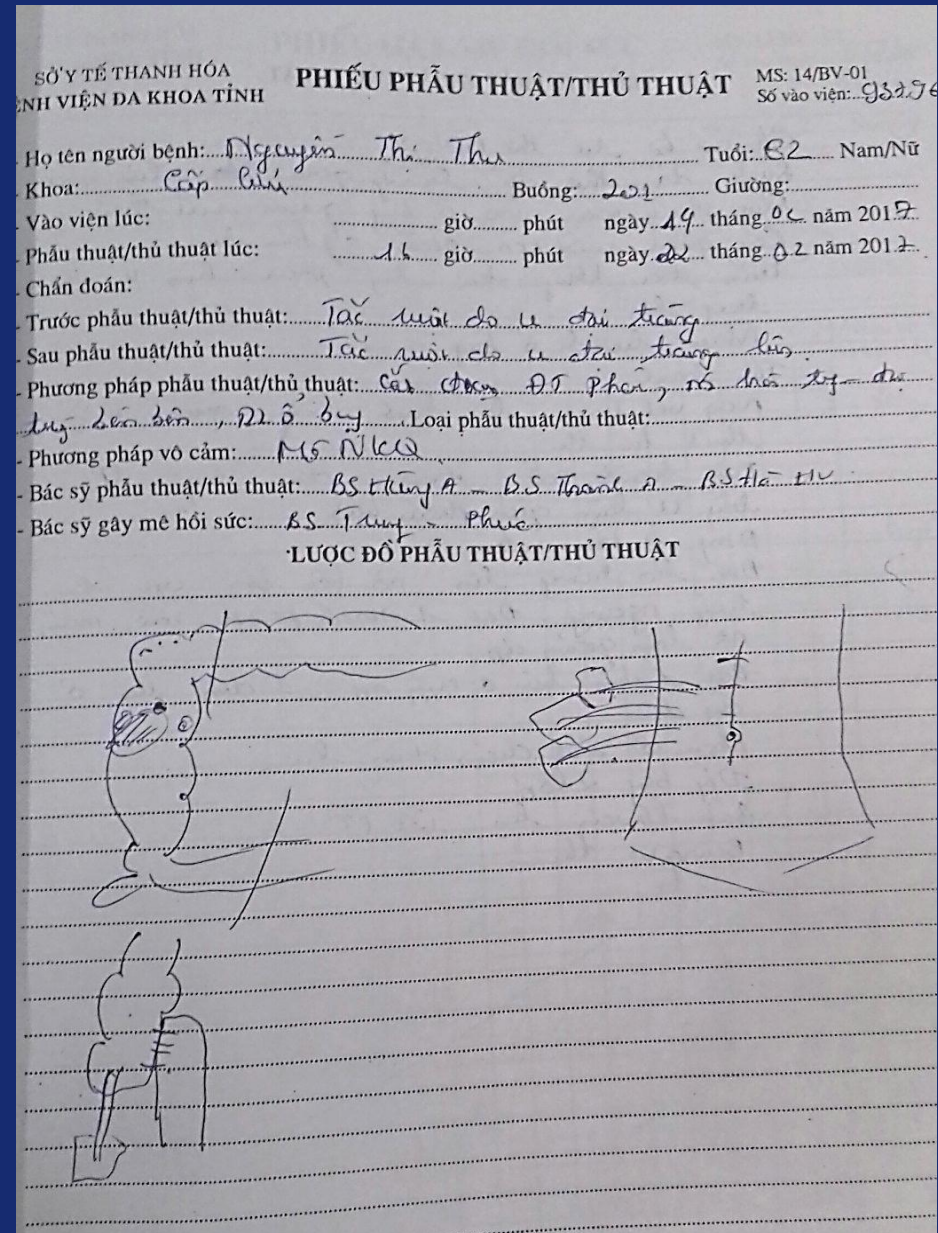 SỞ Y TẾ THANH HÓA
ỆNH VIỆN ĐA KHOA TỈNH
PHIẾU PHẪU THUẬT/THỦ THUẬT
MS: 14/BV-01
Số vào viện:
Họ tên người bệnh: Nguyễn Thị Thu Tuổi: 82 Nam/Nữ
Khoa: Cấp Cứu Buồng: 201 Giường:
Vào viện lúc: giờ phút ngày 19 tháng năm 2017
Phẫu thuật/thủ thuật lúc: 16 giờ phút ngày 22 tháng 02 năm 2017
Chẩn đoán:
- Trước phẫu thuật/thủ thuật: Tắc ruột do u đại tràng
- Sau phẫu thuật/thủ thuật: Tắc ruột do u đại tràng
- Phương pháp phẫu thuật/thủ thuật: Cắt ĐT phải, nối
bên bên, DL ổ bụng Loại phẫu thuật/thủ thuật:
- Phương pháp vô cảm: NKQ
- Bác sỹ phẫu thuật/thủ thuật: BS. Hùng A - B.S Thành A - B.S
- Bác sỹ gây mê hồi sức: BS. - Phúc
LƯỢC ĐỒ PHẪU THUẬT/THỦ THUẬT